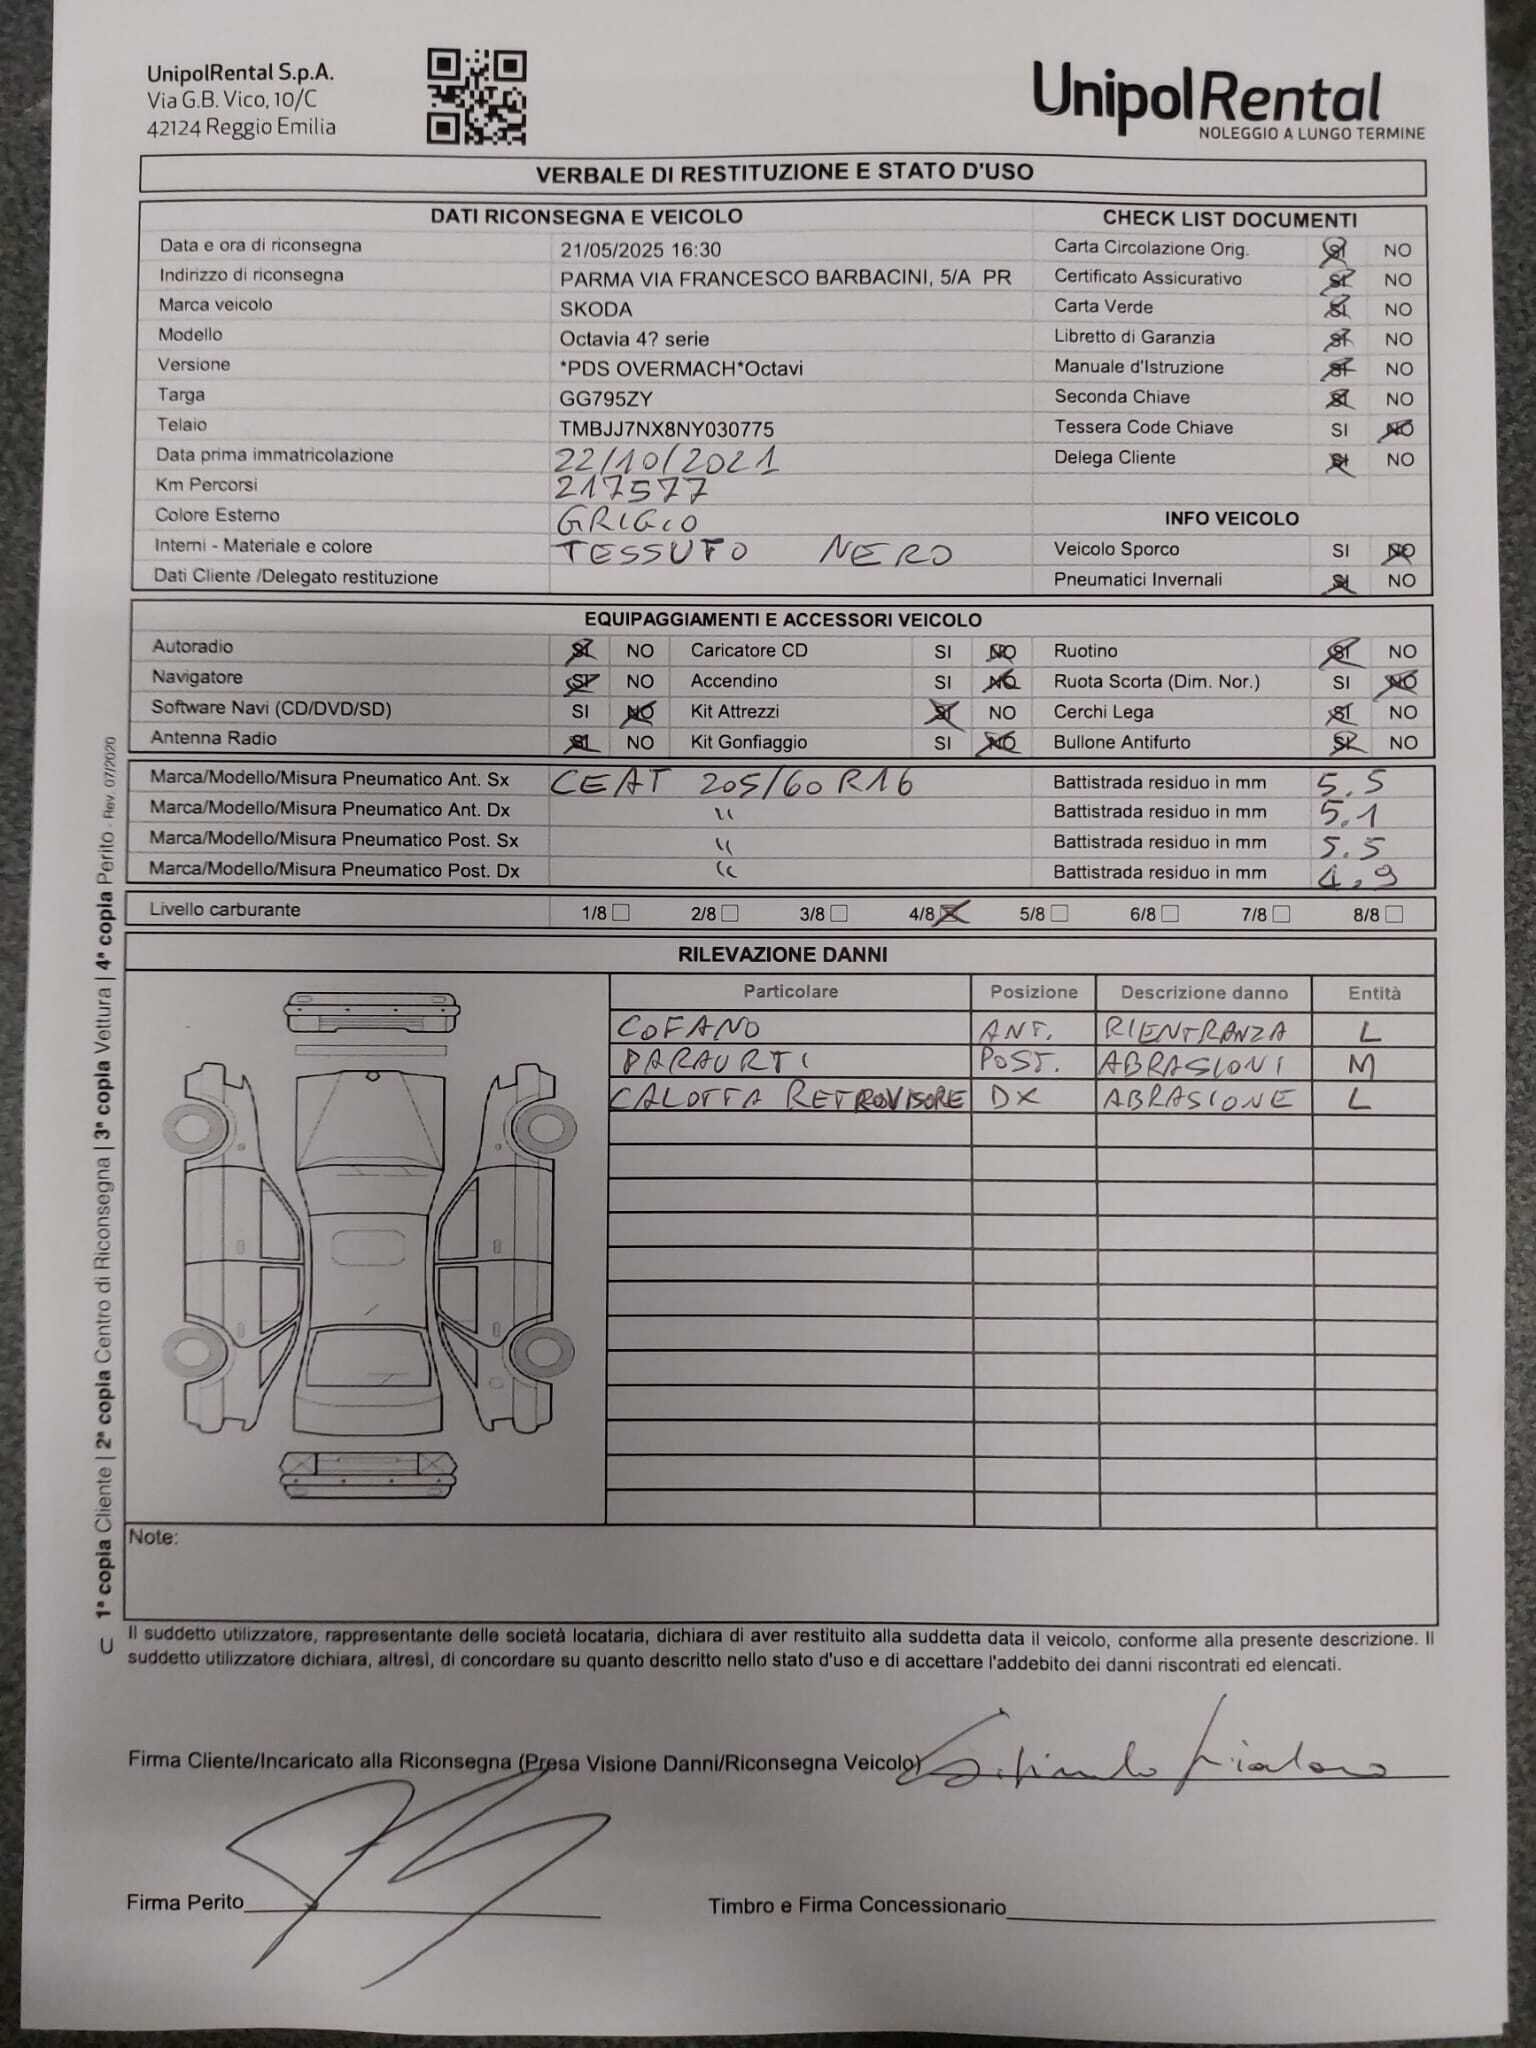 UnipolRental S.p.A.
Via G.B. Vico, 10/C
42124 Reggio Emilia
UnipolRental
NOLEGGIO A LUNGO TERMINE
VERBALE DI RESTITUZIONE E STATO D'USO
DATI RICONSEGNA E VEICOLO CHECK LIST DOCUMENTI
Data e ora di riconsegna 21/05/2025 16:30 Carta Circolazione Orig. SI NO
Indirizzo di riconsegna PARMA VIA FRANCESCO BARBACINI, 5/A PR Certificato Assicurativo SI NO
Marca veicolo SKODA Carta Verde SI NO
Modello Octavia 4? serie Libretto di Garanzia SI NO
Versione *PDS OVERMACH*Octavi Manuale d'Istruzione SI NO
Targa GG795ZY Seconda Chiave SI NO
Telaio TMBJJ7NX8NY030775 Tessera Code Chiave SI NO
Data prima immatricolazione 22/10/2021 Delega Cliente SI NO
Km Percorsi 217577
Colore Esterno GRIGIO INFO VEICOLO
Interni - Materiale e colore TESSUTO NERO Veicolo Sporco SI NO
Dati Cliente /Delegato restituzione Pneumatici Invernali SI NO
EQUIPAGGIAMENTI E ACCESSORI VEICOLO
Autoradio SI NO Caricatore CD SI NO Ruotino SI NO
Navigatore SI NO Accendino SI NO Ruota Scorta (Dim. Nor.) SI NO
Software Navi (CD/DVD/SD) SI NO Kit Attrezzi SI NO Cerchi Lega SI NO
Antenna Radio SI NO Kit Gonfiaggio SI NO Bullone Antifurto SI NO
Marca/Modello/Misura Pneumatico Ant. Sx CEAT 205/60 R16 Battistrada residuo in mm 5.5
Marca/Modello/Misura Pneumatico Ant. Dx " Battistrada residuo in mm 5.1
Marca/Modello/Misura Pneumatico Post. Sx " Battistrada residuo in mm 5.5
Marca/Modello/Misura Pneumatico Post. Dx " Battistrada residuo in mm 4.9
Livello carburante 1/8 2/8 3/8 4/8 5/8 6/8 7/8 8/8
RILEVAZIONE DANNI
Particolare Posizione Descrizione danno Entità
COFANO ANT. RIENTRANZA L
PARAURTI POST. ABRASIONI M
CALOTTA RETROVISORE DX ABRASIONE L
Note:
U 1ª copia Cliente | 2ª copia Centro di Riconsegna | 3ª copia Vettura | 4ª copia Perito - Rev. 07/2020
Il suddetto utilizzatore, rappresentante delle società locataria, dichiara di aver restituito alla suddetta data il veicolo, conforme alla presente descrizione. Il
suddetto utilizzatore dichiara, altresì, di concordare su quanto descritto nello stato d'uso e di accettare l'addebito dei danni riscontrati ed elencati.
Firma Cliente/Incaricato alla Riconsegna (Presa Visione Danni/Riconsegna Veicolo)
Firma Perito Timbro e Firma Concessionario